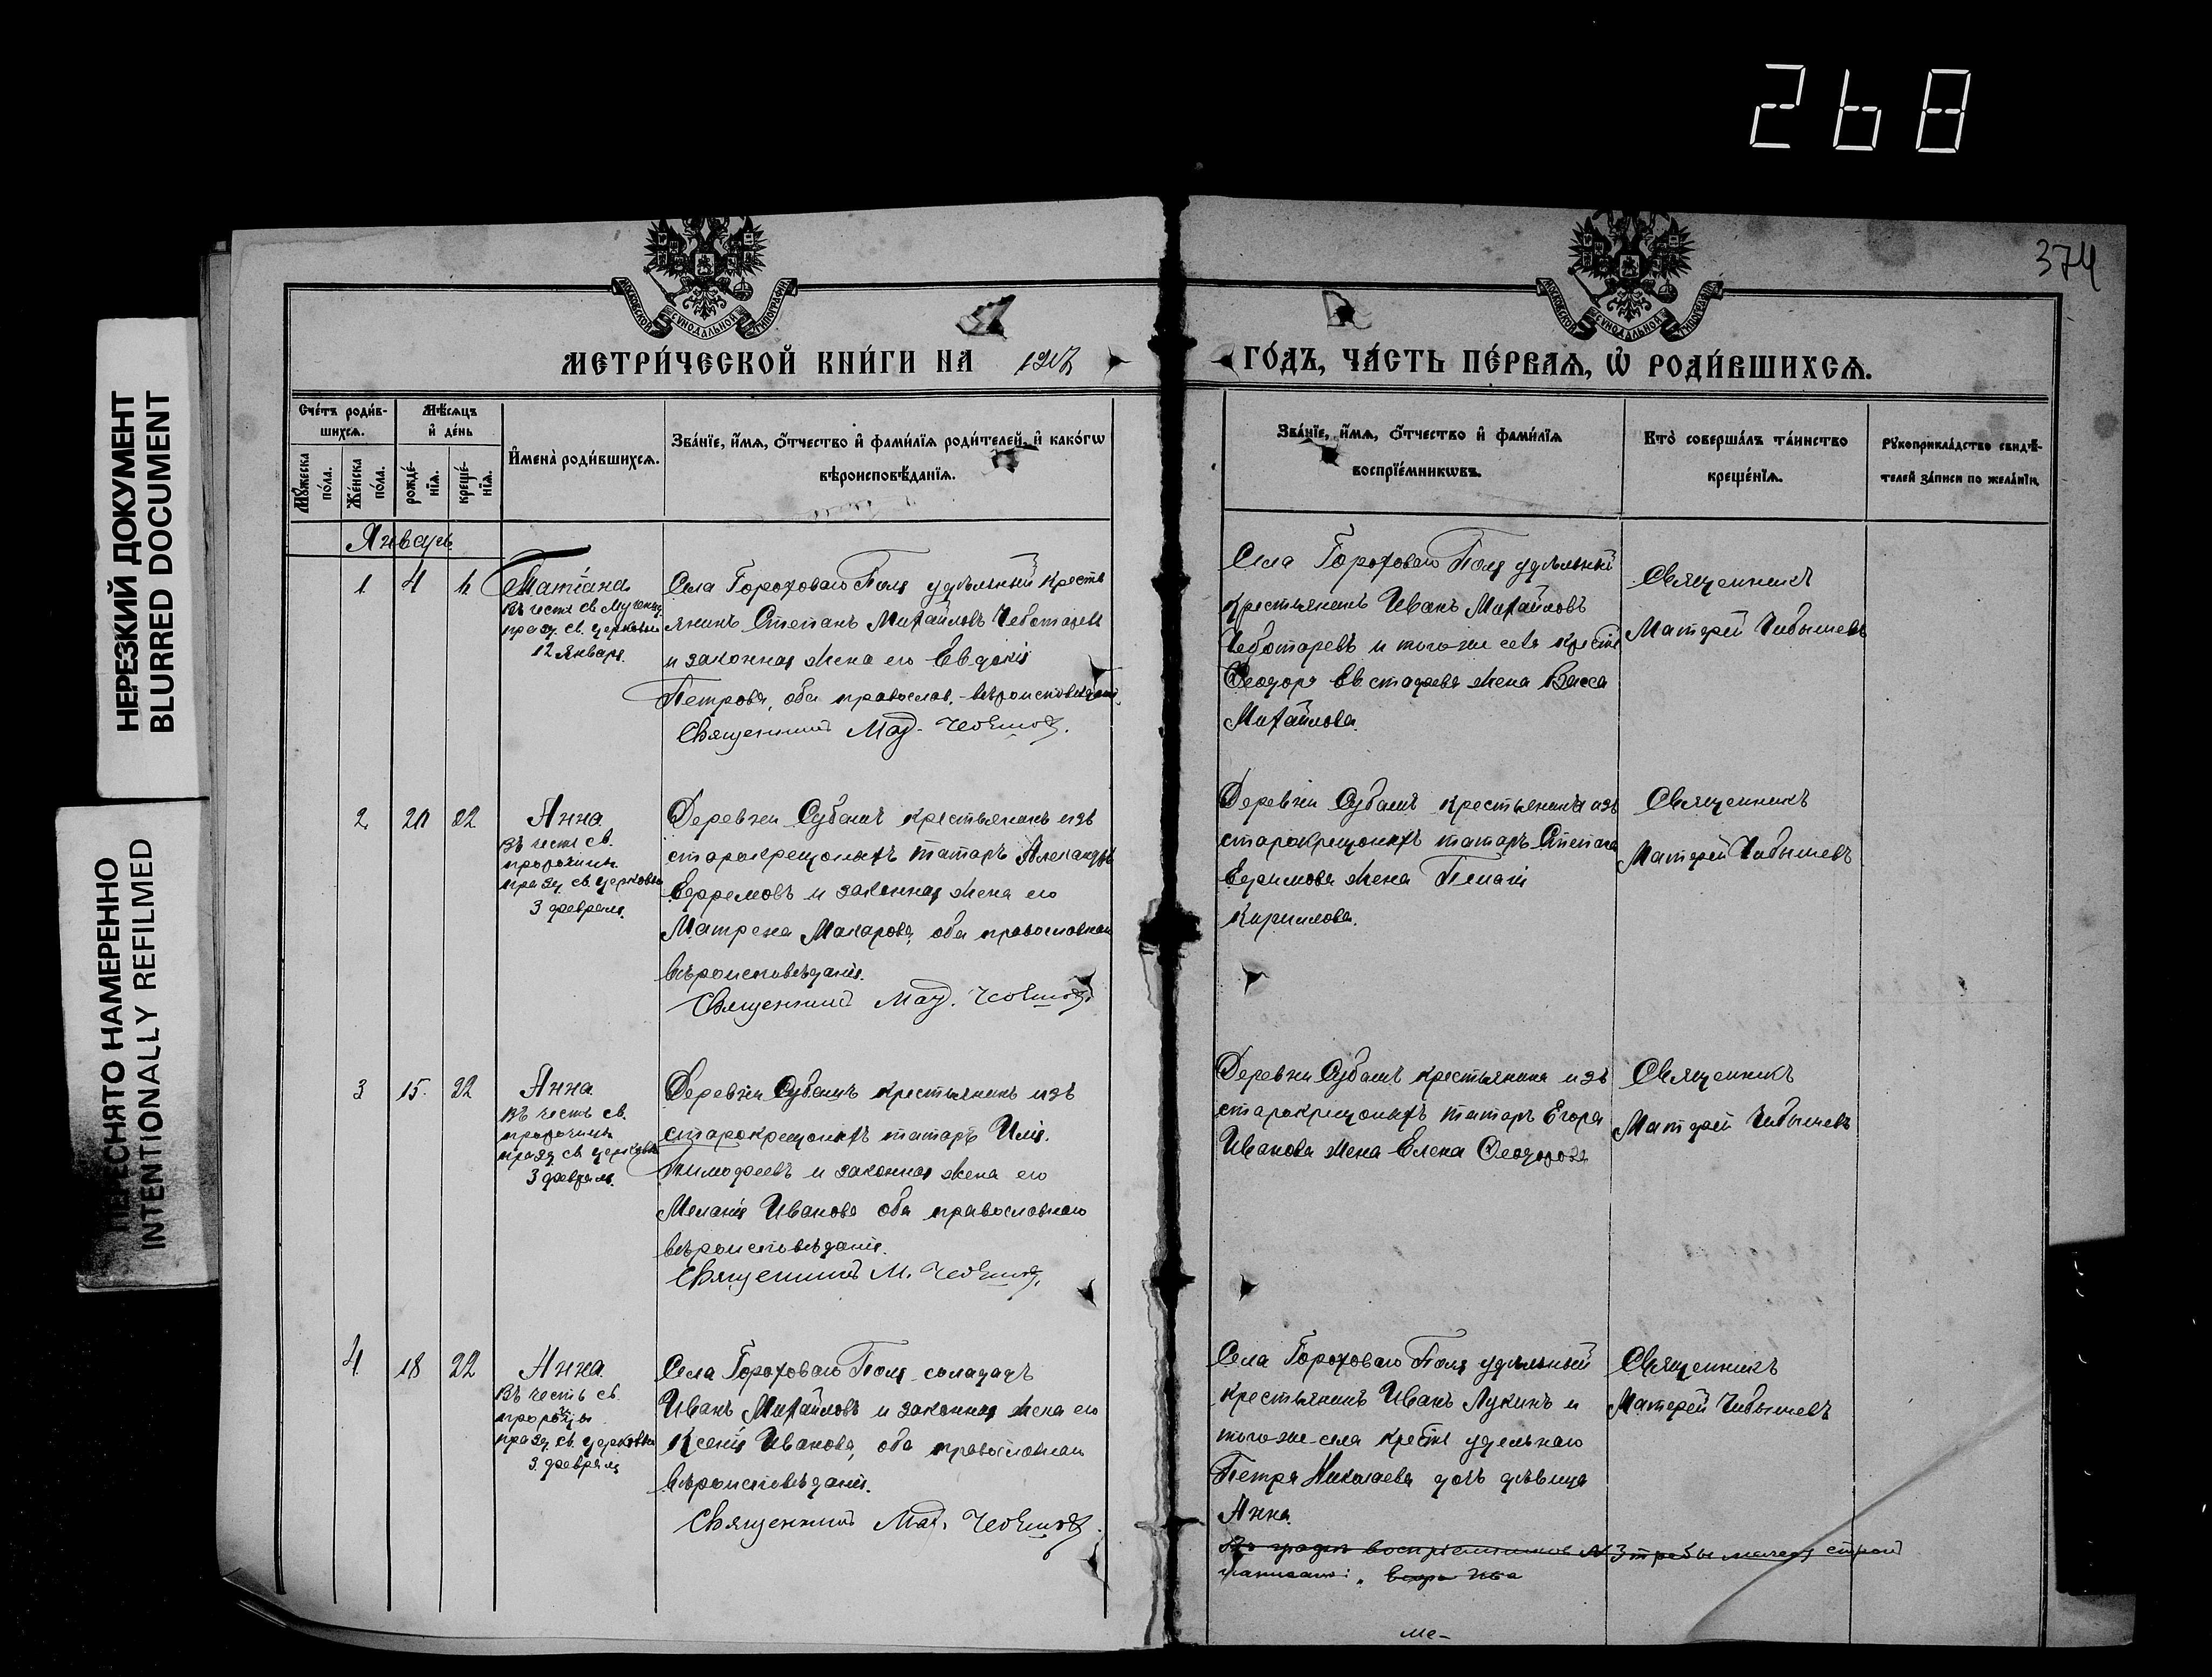 268
НЕРЕЗКИЙ ДОКУМЕНТ
BLURRED DOCUMENT
ПЕРЕСНЯТО НАМЕРЕННО
INTENTIONALLY REFILMED
374
МОСКОВСКОЙ СѴНОДАЛЬНОЙ ТИПОГРАФІИ
МОСКОВСКОЙ СѴНОДАЛЬНОЙ ТИПОГРАФІИ
МЕТРИ́ЧЕСКОЙ КНИ́ГИ НА
ГО́ДЪ, ЧА́СТЬ ПЕ́РВАѦ, Ѡ҆ РОДИ́ВШИХСѦ.
Сче́тъ роди́в-
шихсѧ.
Мꙋ́жеска
по́ла.
Же́нска
по́ла.
Мѣ́сѧцъ
и҆ де́нь
рожде́-
нїѧ.
креще́-
нїѧ.
И҆мена̀ роди́вшихсѧ.
Зва́нїе, и҆́мѧ, ѻ҆́тчество и҆ фами́лїѧ роди́телей, и҆ како́гѡ
вѣроисповѣ́данїѧ.
Зва́нїе, и҆́мѧ, ѻ҆́тчество и҆ фами́лїѧ
воспрїе́мникѡвъ.
Кто̀ соверша́лъ та́инство
креще́нїѧ.
Рꙋкоприкла́дство свидѣ́-
телей за́писи по жела́нїю.
Январь
1 4
Татіана
Въ честь св. Мученицы
празд. св. церковью
12 Января.
Села Гороховаго Поля удѣльный кресть
янинъ Степанъ Михайловъ Чеботаревъ
и законная жена его Евдокія
Петрова, оба православ. вѣроисповѣданія.
Священникъ
Села Гороховаго Поля удѣльный
крестьянинъ Иванъ Михайловъ
Чеботаревъ и того-же села
Ѳеодора Евстафьева жена Васса
Михайлова.
Священникъ
Матфей Чибышевъ
2 22
Анна
Въ честь св.
пророчицы
празд. св. церковью
3 февраля.
Деревни Субашъ крестьянинъ изъ
старокрещоныхъ татаръ Александръ
Ефремовъ и законная жена его
Матрена Макарова, оба православнаго
вѣроисповѣданія.
Священникъ
Деревни Субашъ крестьянина изъ
старокрещоныхъ татаръ Степана
жена
Кириллова.
Священникъ
Матфей Чибышевъ
3 15. 22
Анна
Въ честь св.
пророчицы
празд. св. церковью
3 февраля.
Деревни Субашъ крестьянинъ изъ
старокрещоныхъ татаръ Илія
Тимофеевъ и законная жена его
Меланія Иванова оба православнаго
вѣроисповѣданія.
Священникъ М.
Деревни Субашъ крестьянина изъ
старокрещоныхъ татаръ Егора
Иванова жена Елена Ѳеодорова
Священникъ
Матфей Чибышевъ
4 18 22
Анна
Въ честь св.
пророчицы
празд. св. церковью
3 февраля
Села Гороховаго Поля солдатъ
Иванъ Михайловъ и законная жена его
Ксенія Иванова, оба православнаго
вѣроисповѣданія.
Священникъ
Села Гороховаго Поля удѣльный
крестьянинъ Иванъ Лукинъ и
того-же села удельнаго
Петра Николаева дочь дѣвица
Анна.
Священникъ
Матфей Чибышевъ
Въ графѣ воспріемниковъ № 3
Ме-